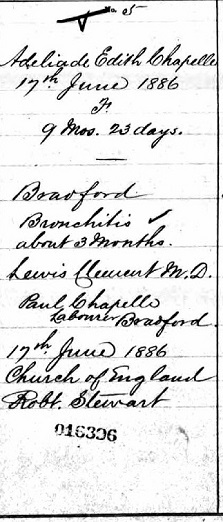 No. 05
Adeliade Edith Chapelle
17th June 1886
F
9 Mos. 23 days.
Bradford
Bronchitis ✓
about 3 Months.
Lewis Clement M.D.
Paul Chapelle
Labourer Bradford.
17th June 1886
Church of England
Robt. Stewart
016396